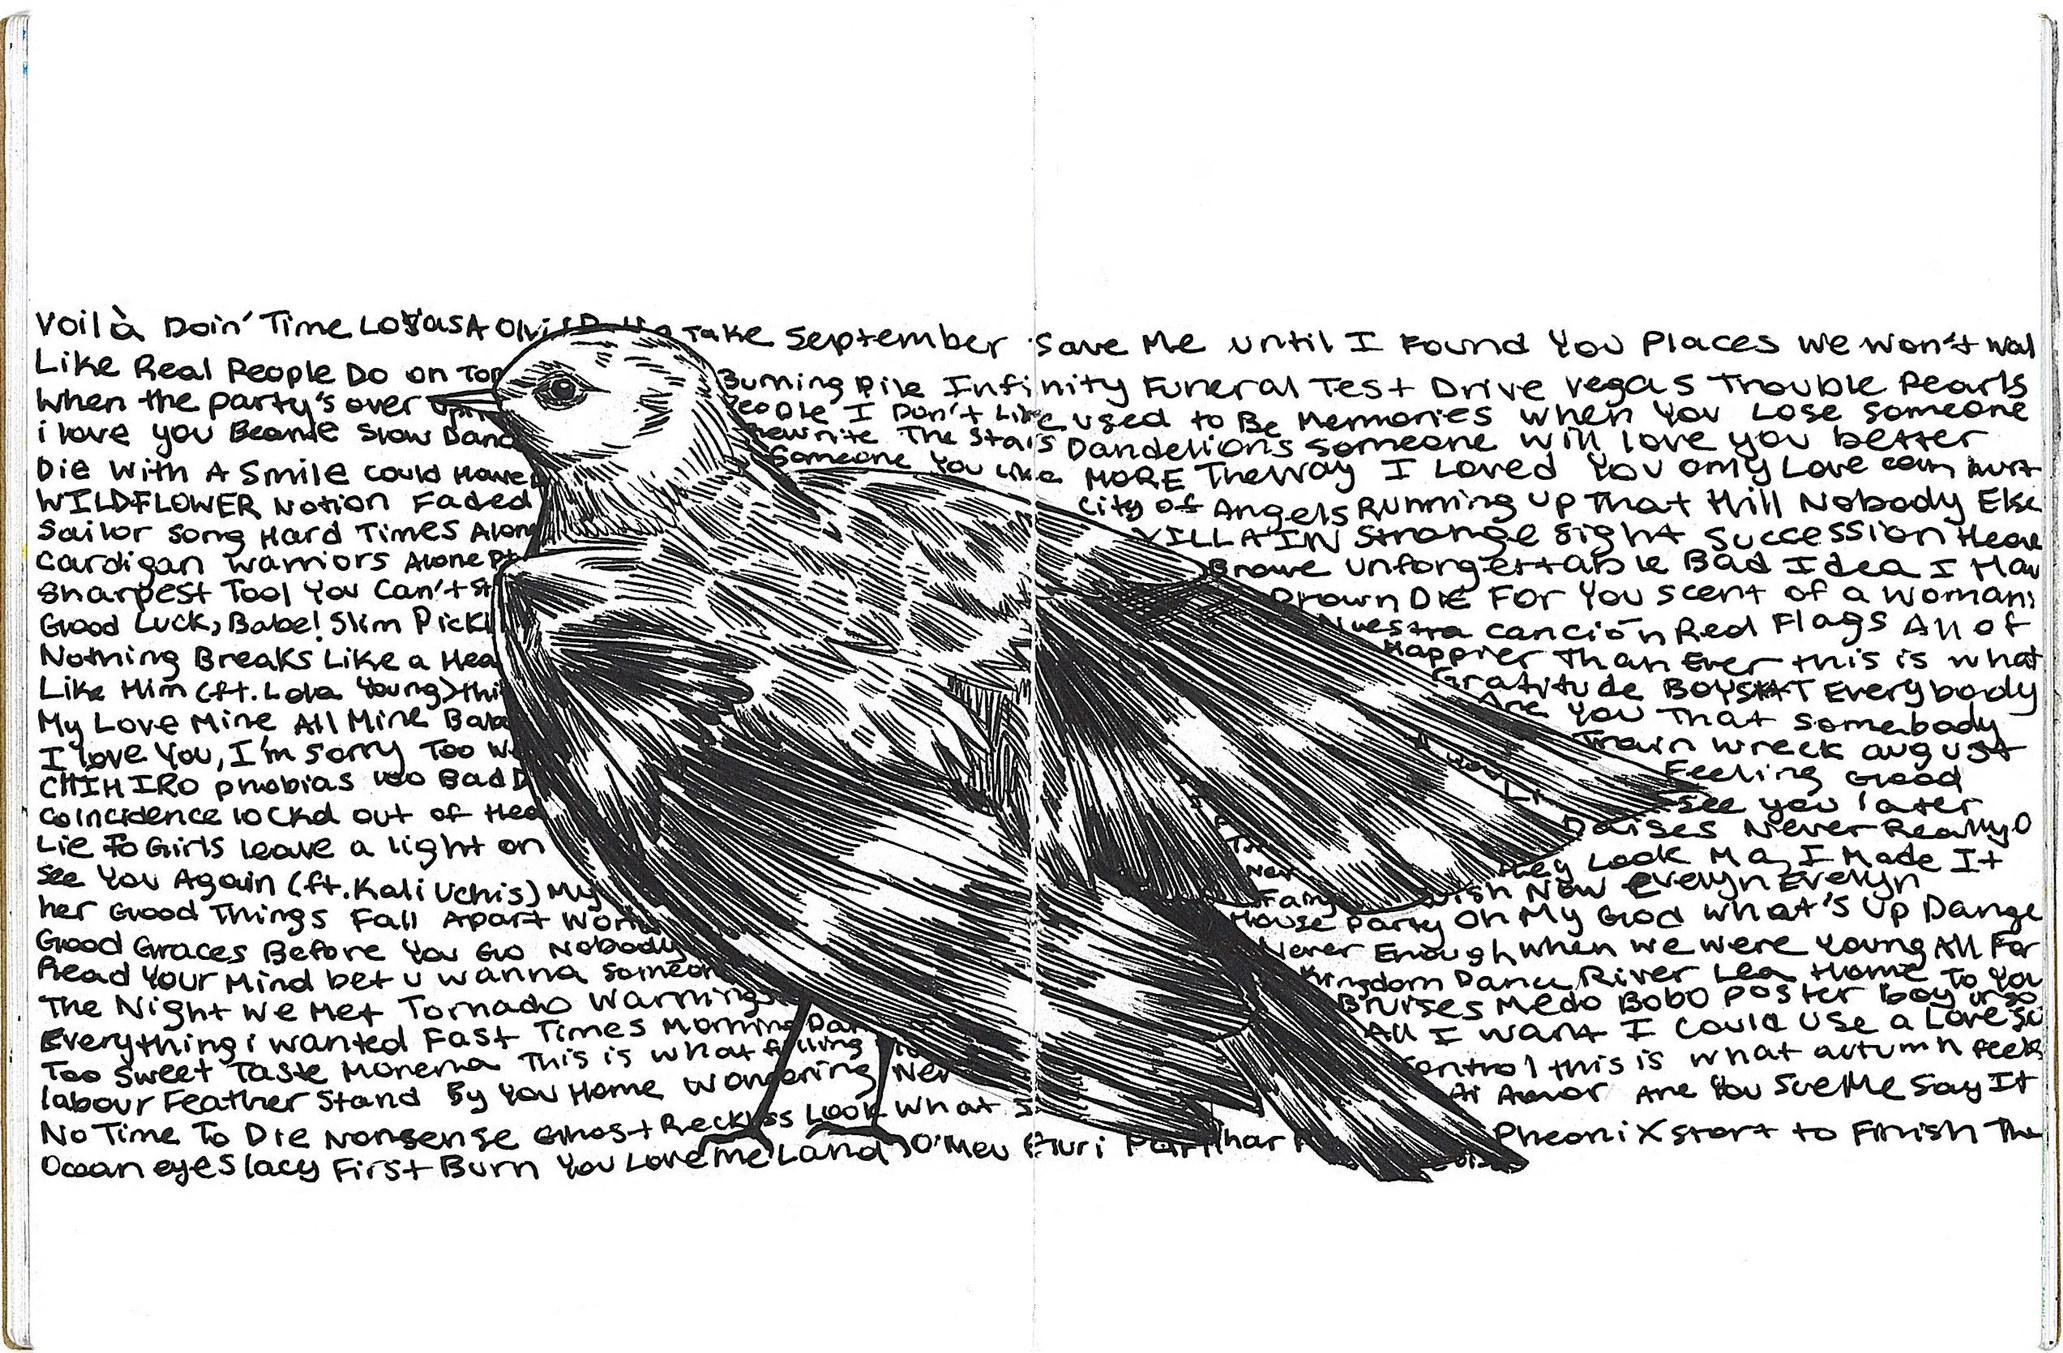 Voilà Doin' Time Take September Save Me Until I Found You Places We Won't Wal
Like Real People Do on Top Burning Pile Infinity Funeral Test Drive Vegas Trouble Pearls
When the party's over People I Don't Like used to Be Memories When You Lose Someone
i love you Beanie Slow Danc Rewrite The Stars Dandelions Someone Will love you better
Die With A Smile Could Have Someone You Like MORE The Way I Loved You only Love can hurt
WILDFLOWER Notion Faded City of Angels Running Up That Hill Nobody Else
Sailor Song Hard Times Alon VILLAIN Strange Sight Succession
Cardigan Warriors Alone Pt Unforgettable Bad Idea I
Sharpest Tool You Can't St Drown DIE FOR You Scent of a Woman
Good Luck, Babe! Slim Picki Nuestra Canción Red Flags All of
Nothing Breaks Like a Hea Happier Than Ever this is what
Like Him (ft. Lola Young) thi Gratitude Everybody
My Love Mine All Mine Are You That Somebody
I Love You, I'm Sorry Too Train wreck august
CHIHIRO phobias Bad Feeling Good
Coincidence lockd out of Hea See you later
Lie To Girls leave a light on Daises Never Really
See You Again (ft. Kali Uchis) My They Look Ma, I Made It
her Good Things Fall Apart Wish Now Evelyn Evelyn
Good Graces Before You Go Nobody House Party Oh My God What's Up Dange
Read Your Mind bet u wanna Someon Never Enough When we were Young All For
The Night We Met Tornado Warnings Kingdom Dance River Lea Home To You
Everything i wanted Fast Times Morning Bruises Medo Bobo Poster boy
Too Sweet Taste Morena This is what falling All I want I Could Use a Love So
labour Feather Stand By You Home Wondering this is what autumn feels
No Time To Die Nonsense Ghost Reckless Look What Ai Amor Are You Say It
Ocean eyes lacy First Burn You Love Me Land O Meu Pheonix Start to Finish